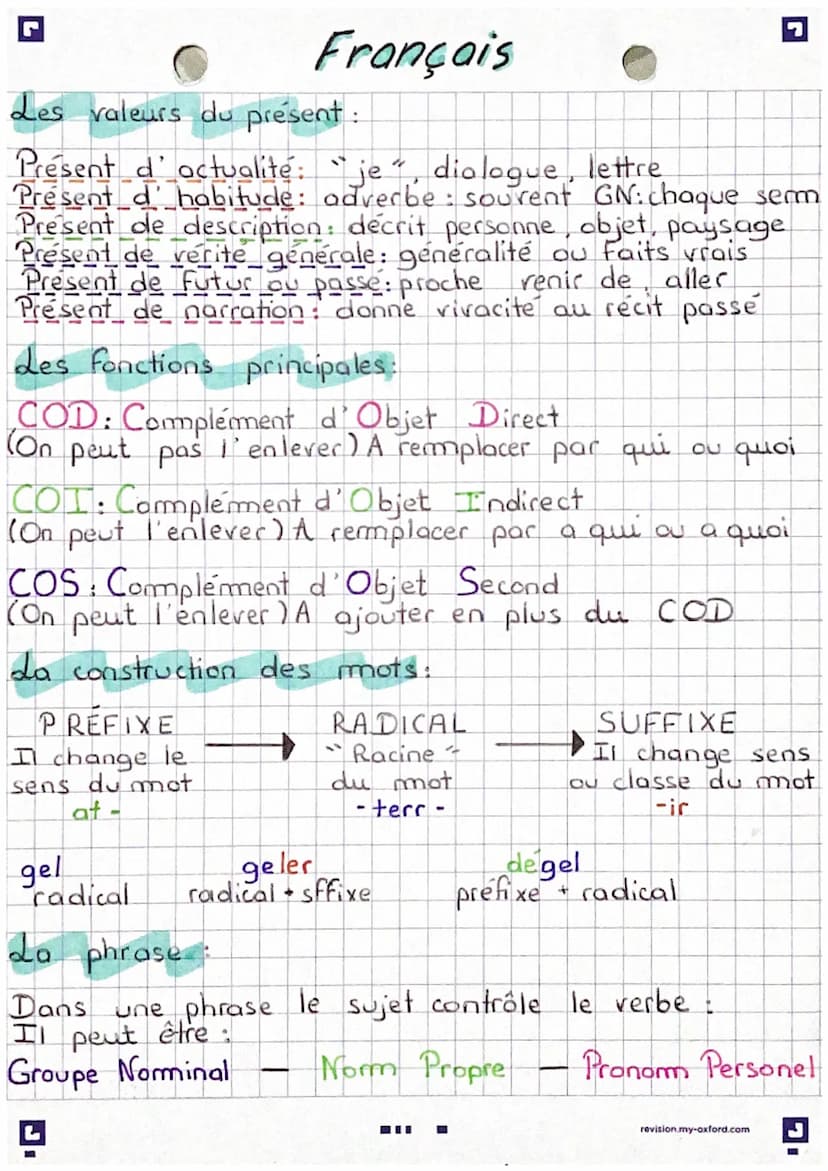 Français
Les valeurs du présent :
Présent d'actualité: "je", dialogue, lettre
Présent d'habitude: adverbe : souvent GN: chaque sem
Présent de description: décrit personne, objet, paysage
Présent de vérité générale: généralité ou faits vrais
Présent de futur ou passé: proche venir de, aller
Présent de narration: donne vivacité au récit passé
Les fonctions principales:
COD: Complément d'Objet Direct
(On peut pas l'enlever) A remplacer par qui ou quoi
COI: Complément d'Objet Indirect
(On peut l'enlever) A remplacer par a qui ou a quoi
COS: Complément d'Objet Second
(On peut l'enlever) A ajouter en plus du COD
La construction des mots:
PRÉFIXE RADICAL SUFFIXE
Il change le "Racine" Il change sens
sens du mot du mot ou classe du mot
at- -terr- -ir
gel geler dégel
radical radical + sffixe préfixe + radical
La phrase :
Dans une phrase le sujet contrôle le verbe :
Il peut être :
Groupe Nominal — Nom Propre — Pronom Personel
revision.my-oxford.com